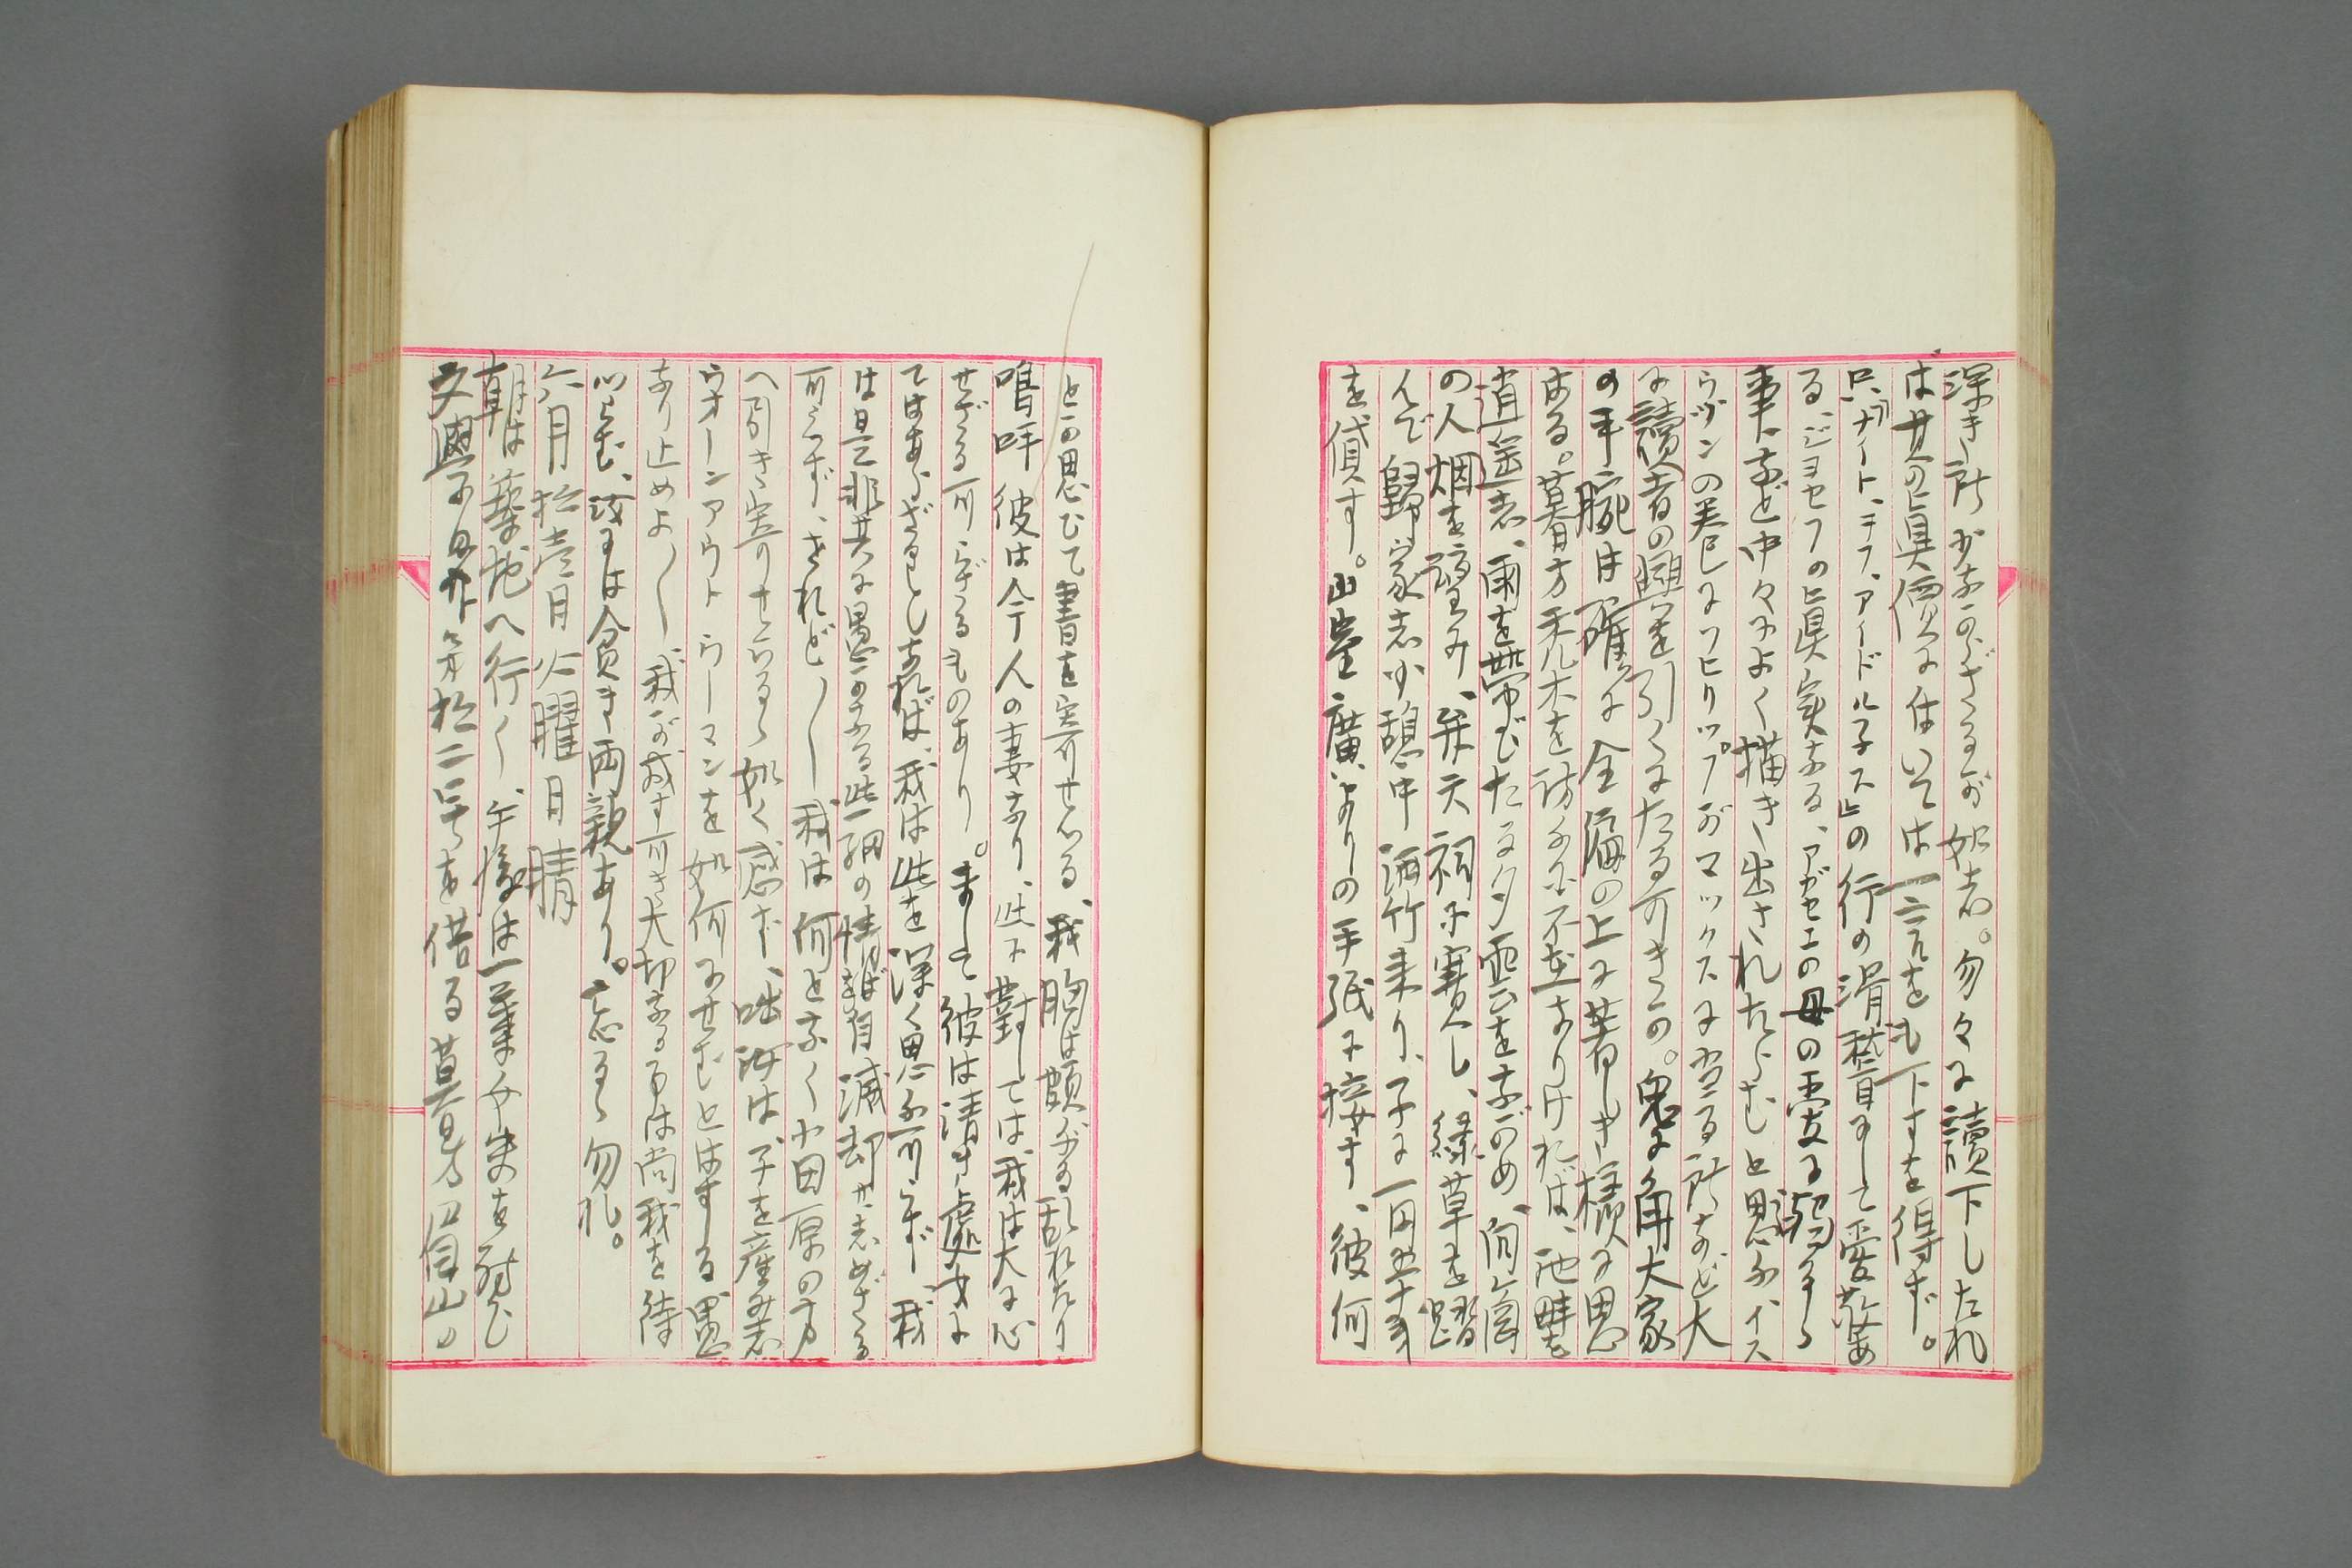 深き所少なからざるが如志。匆々に讀下したれ
ば其の眞價に付いては一言をも下すを得ず。
只、『ナイト、ヲフ、アイドルネス』の行の滑稽にして愛敬あ
る、ジョセフの眞実なる、アガセエの母の霊に
事など中々によく描き出されたらむと思ふ、イス
ラツンの美しにフヒリップがマックスに当る所など大
に讀者の興を引くにたる可きか。鬼に角大家
の手腕は確に全編の上に著しき様に思
はる。暮方禿木を訪ふに不在なりければ、池畔を
逍遥志、雨を帯びたる夕雲をながめ、向岡
の人烟を望み、弁天祠に賽し、緑草を踏
んで歸家志少憩中酒竹来り、予に一円五十銭
を貸す。山崖廣よりの手紙に接す、彼何
とか思ひて書を寄せたる、我胸は頗ぶる乱れたり
嗚呼 彼は今人の妻なり、此に對しては我は大に心
せざる可らざるものあり。まして彼は清き處女に
てはあらざるとしなれば、我は此を深く思ふ可らず、我
は是非共に愚かなる此一縷の情緒を滅却せ志めざる
可らず、されど〱我は何となく小田原の方
へ引き寄りせらるゝ如く感ず、咄汝は予を産み志
ウオーンアウトウーマンを如何にせむとはする愚
なり止めよ〱、我が為す可き大切なる事は尚我を待
つらむ、汝には貧き両親あり。忘るゝ勿れ。
六月拾壱日火曜日晴
朝は築地へ行く、午後は一葉女史を訪ひ
文學界第拾二号を借る